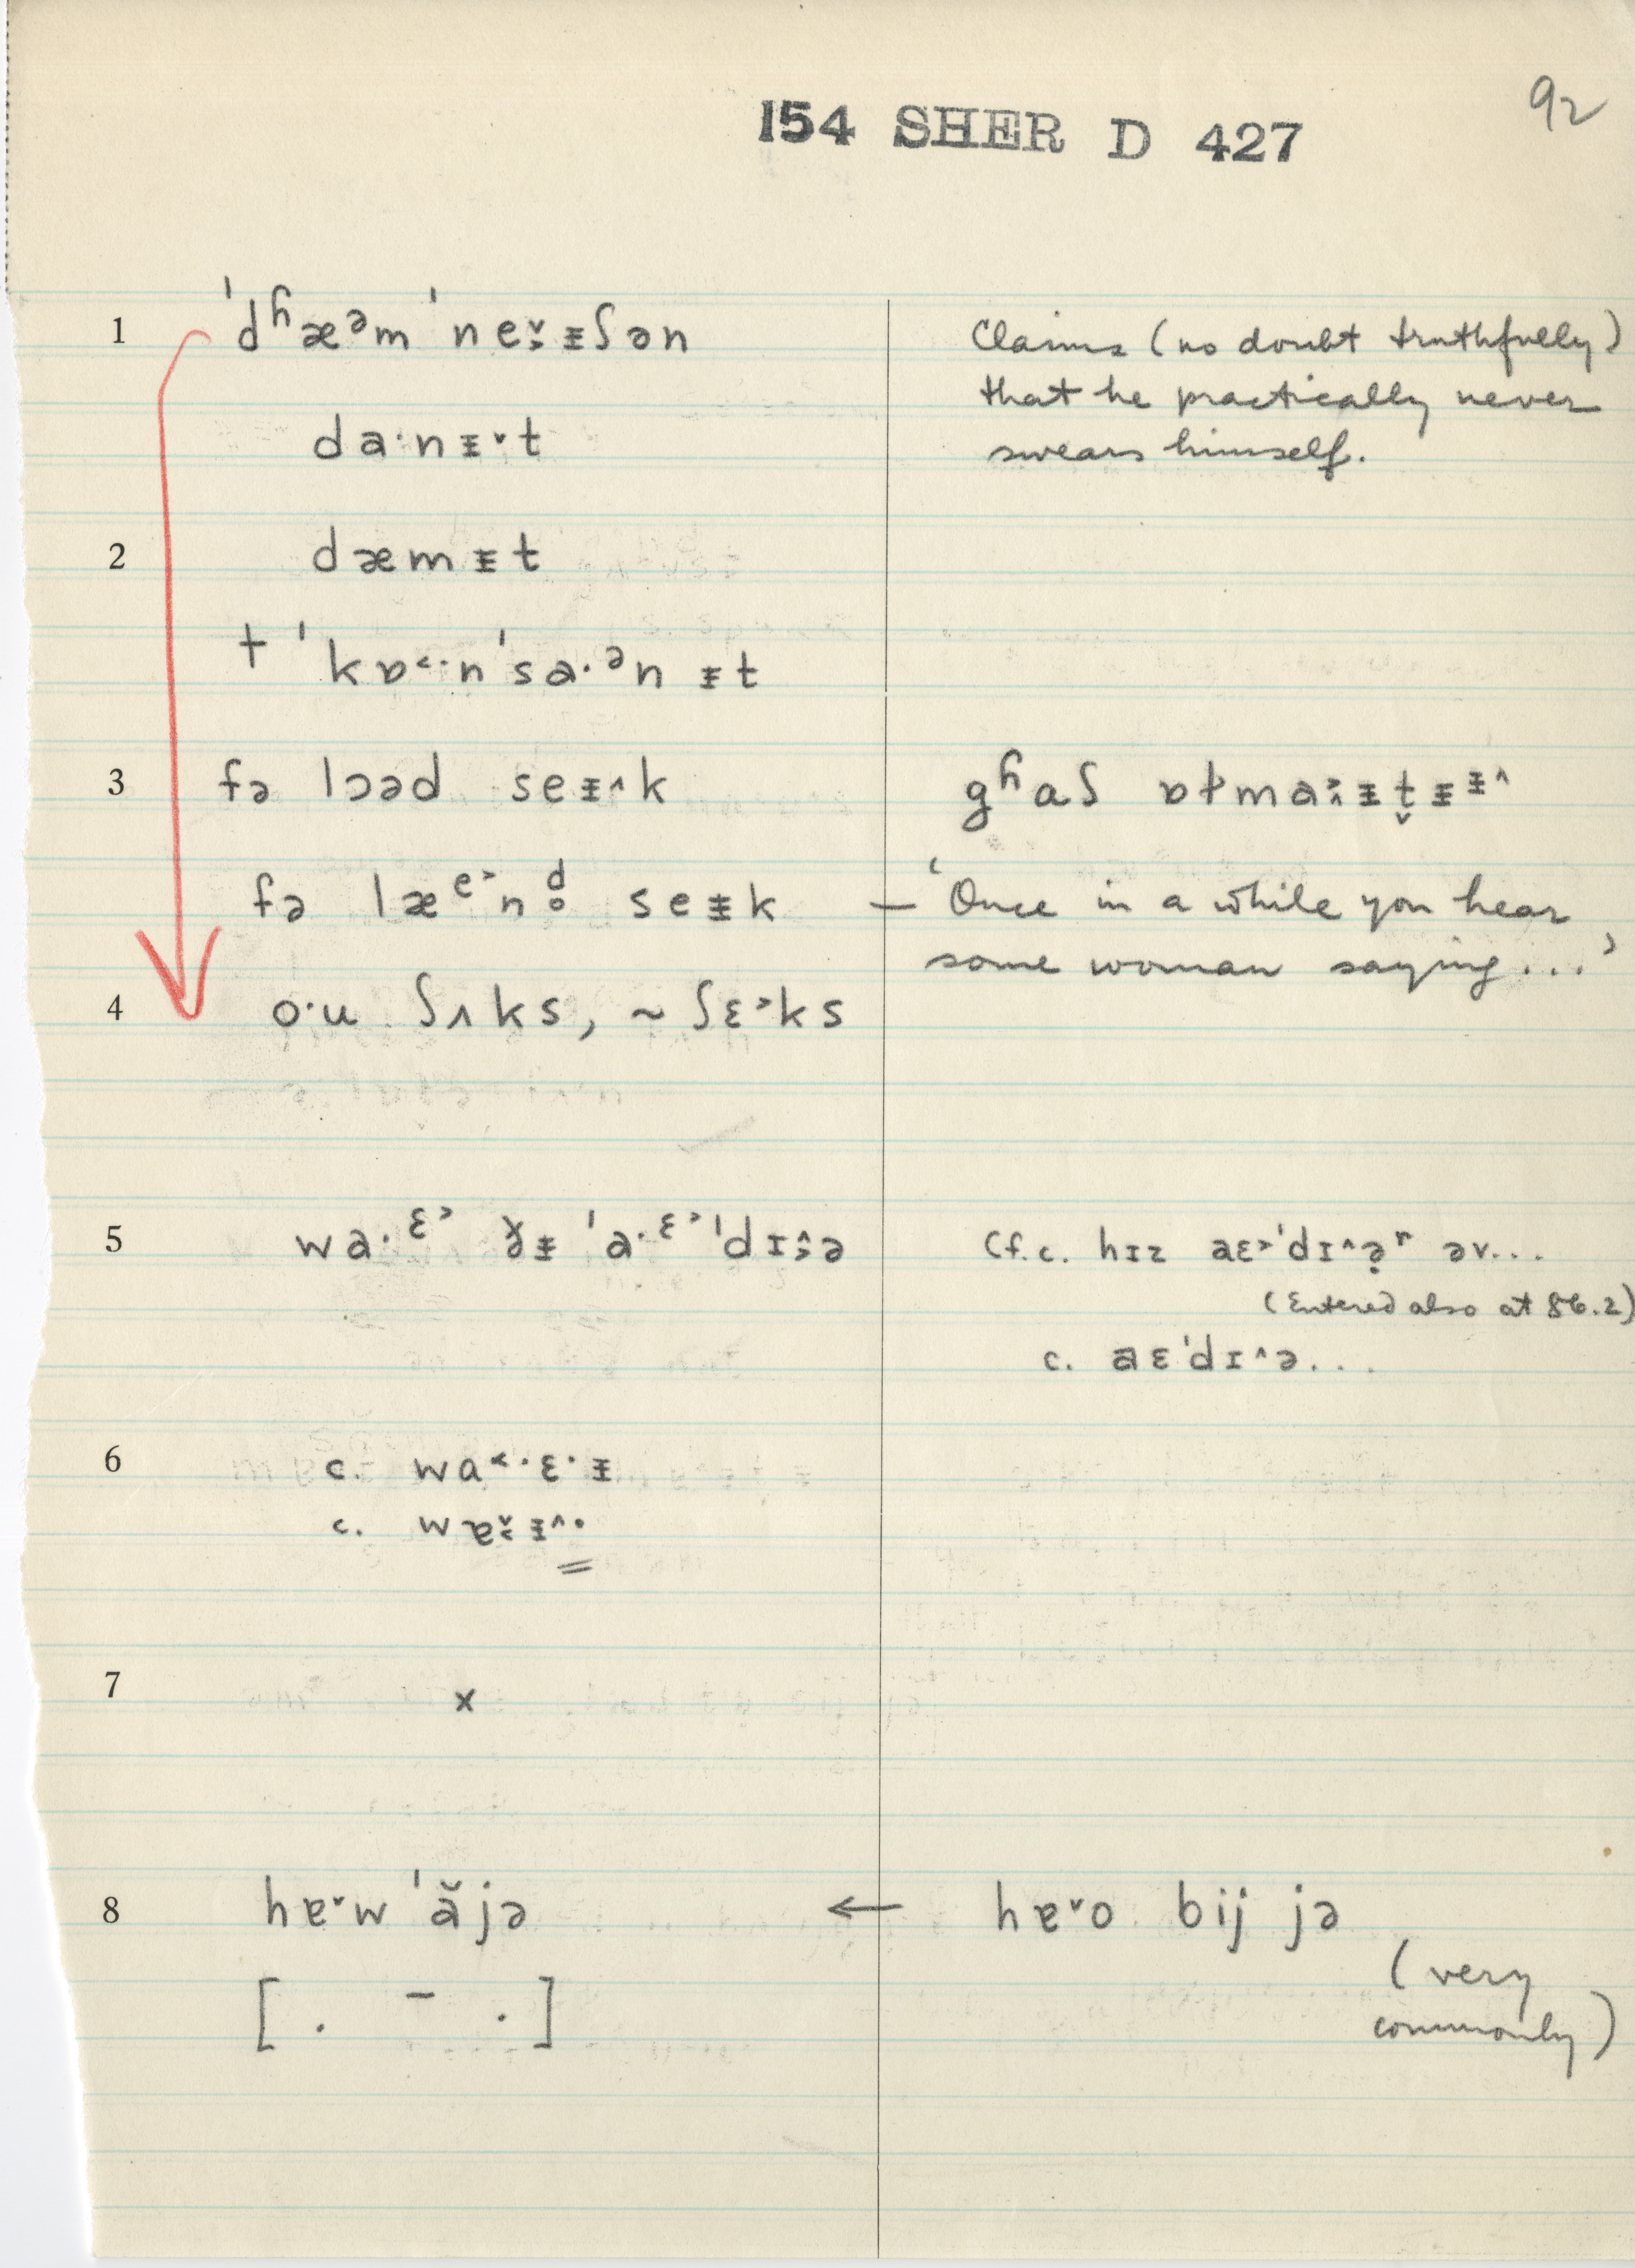 92
154 SHER D 427
1 ˈdʱæᵊm ˈne˅˃ᵻʃən
Claims (no doubt truthfully)
that he practically never
swears himself.
da·nᵻ˅t
2 dæmᵻt
† ˈkɒ˂·nˈsa·ᵊn ᵻt
3 fə lɔəd seᵻ˄k
gʱaʃ ɒɫmaᵻt̬ᵻᵻ˄
fə læᵉ˃nd̥ seᵻk — ‘Once in a while you hear
some woman saying...’
4 o·u ʃʌks, ~ ʃɛ˃ks
5 wa·ᵋ˃ ðᵻ ˈa·ᵋ˃ˈdɪ˄˃ə
Cf. c. hɪz aɛ˃ˈdɪ˄ə̣ʳ əv...
(Entered also at 86.2)
c. aɛˈdɪ˄ə...
6 c. wa˂·ɛ·ᵻ
c. wɐ˅˂ᵻ˄·
7 x
8 hɐ˅w ˈăjə ← hɐ˅o bij jə
(very
commonly)
[. – .]